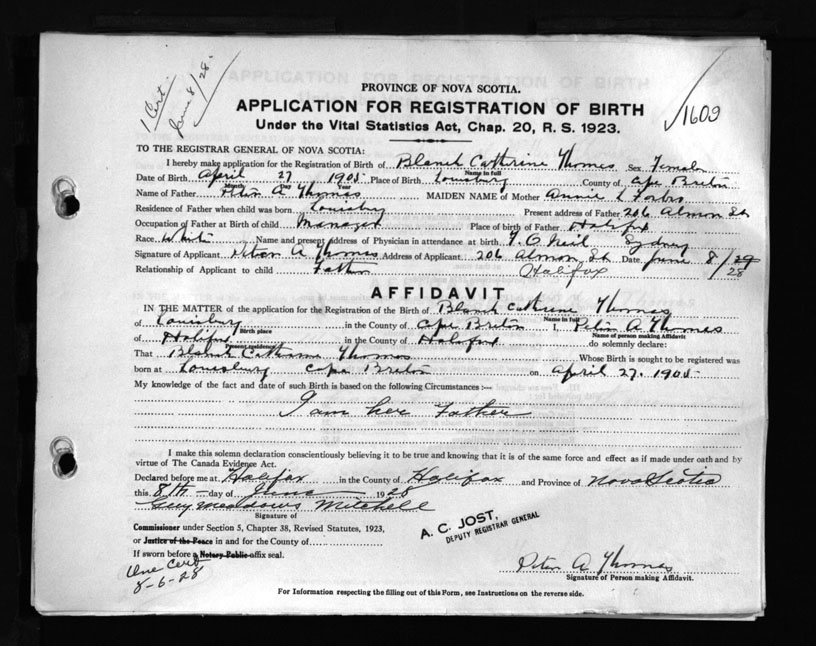 1 Cert
June 8/28.
1609
PROVINCE OF NOVA SCOTIA.
APPLICATION FOR REGISTRATION OF BIRTH
Under the Vital Statistics Act, Chap. 20, R. S. 1923.
TO THE REGISTRAR GENERAL OF NOVA SCOTIA:
I hereby make application for the Registration of Birth of Blanch Catherine Thomas Sex Female
Name in full
Date of Birth April 27 1905 Place of Birth Louisburg County of Cape Breton
Month Day Year
Name of Father Peter A Thomas MAIDEN NAME of Mother Annie L Forbes
Residence of Father when child was born Louisburg Present address of Father 206 Almon St
Occupation of Father at Birth of child Manager Place of birth of Father Halifax
Race White Name and present address of Physician in attendance at birth O Neil Sydney
Signature of Applicant Peter A Thomas Address of Applicant 206 Almon St Date June 8/29
Relationship of Applicant to child Father Halifax 28
AFFIDAVIT
IN THE MATTER of the application for the Registration of the Birth of Blanch Catherine Thomas
Name in full
of Louisburg in the County of Cape Breton I, Peter A Thomas
Birth place Name of person making Affidavit
of Halifax in the County of Halifax do solemnly declare:
Present residence
That Blanch Catherine Thomas Whose Birth is sought to be registered was
born at Louisburg Cape Breton on April 27. 1905
My knowledge of the fact and date of such Birth is based on the following Circumstances:—
I am her Father
I make this solemn declaration conscientiously believing it to be true and knowing that it is of the same force and effect as if made under oath and by
virtue of The Canada Evidence Act.
Declared before me at Halifax in the County of Halifax and Province of Nova Scotia
this 8th day of June 1928
Guy Meadows Mitchell
Signature of
Commissioner under Section 5, Chapter 38, Revised Statutes, 1923,
or Justice of the Peace in and for the County of
If sworn before a Notary Public affix seal.
A. C. JOST,
DEPUTY REGISTRAR GENERAL
One Cert
8-6-28
Peter A Thomas
Signature of Person making Affidavit.
For Information respecting the filling out of this Form, see Instructions on the reverse side.